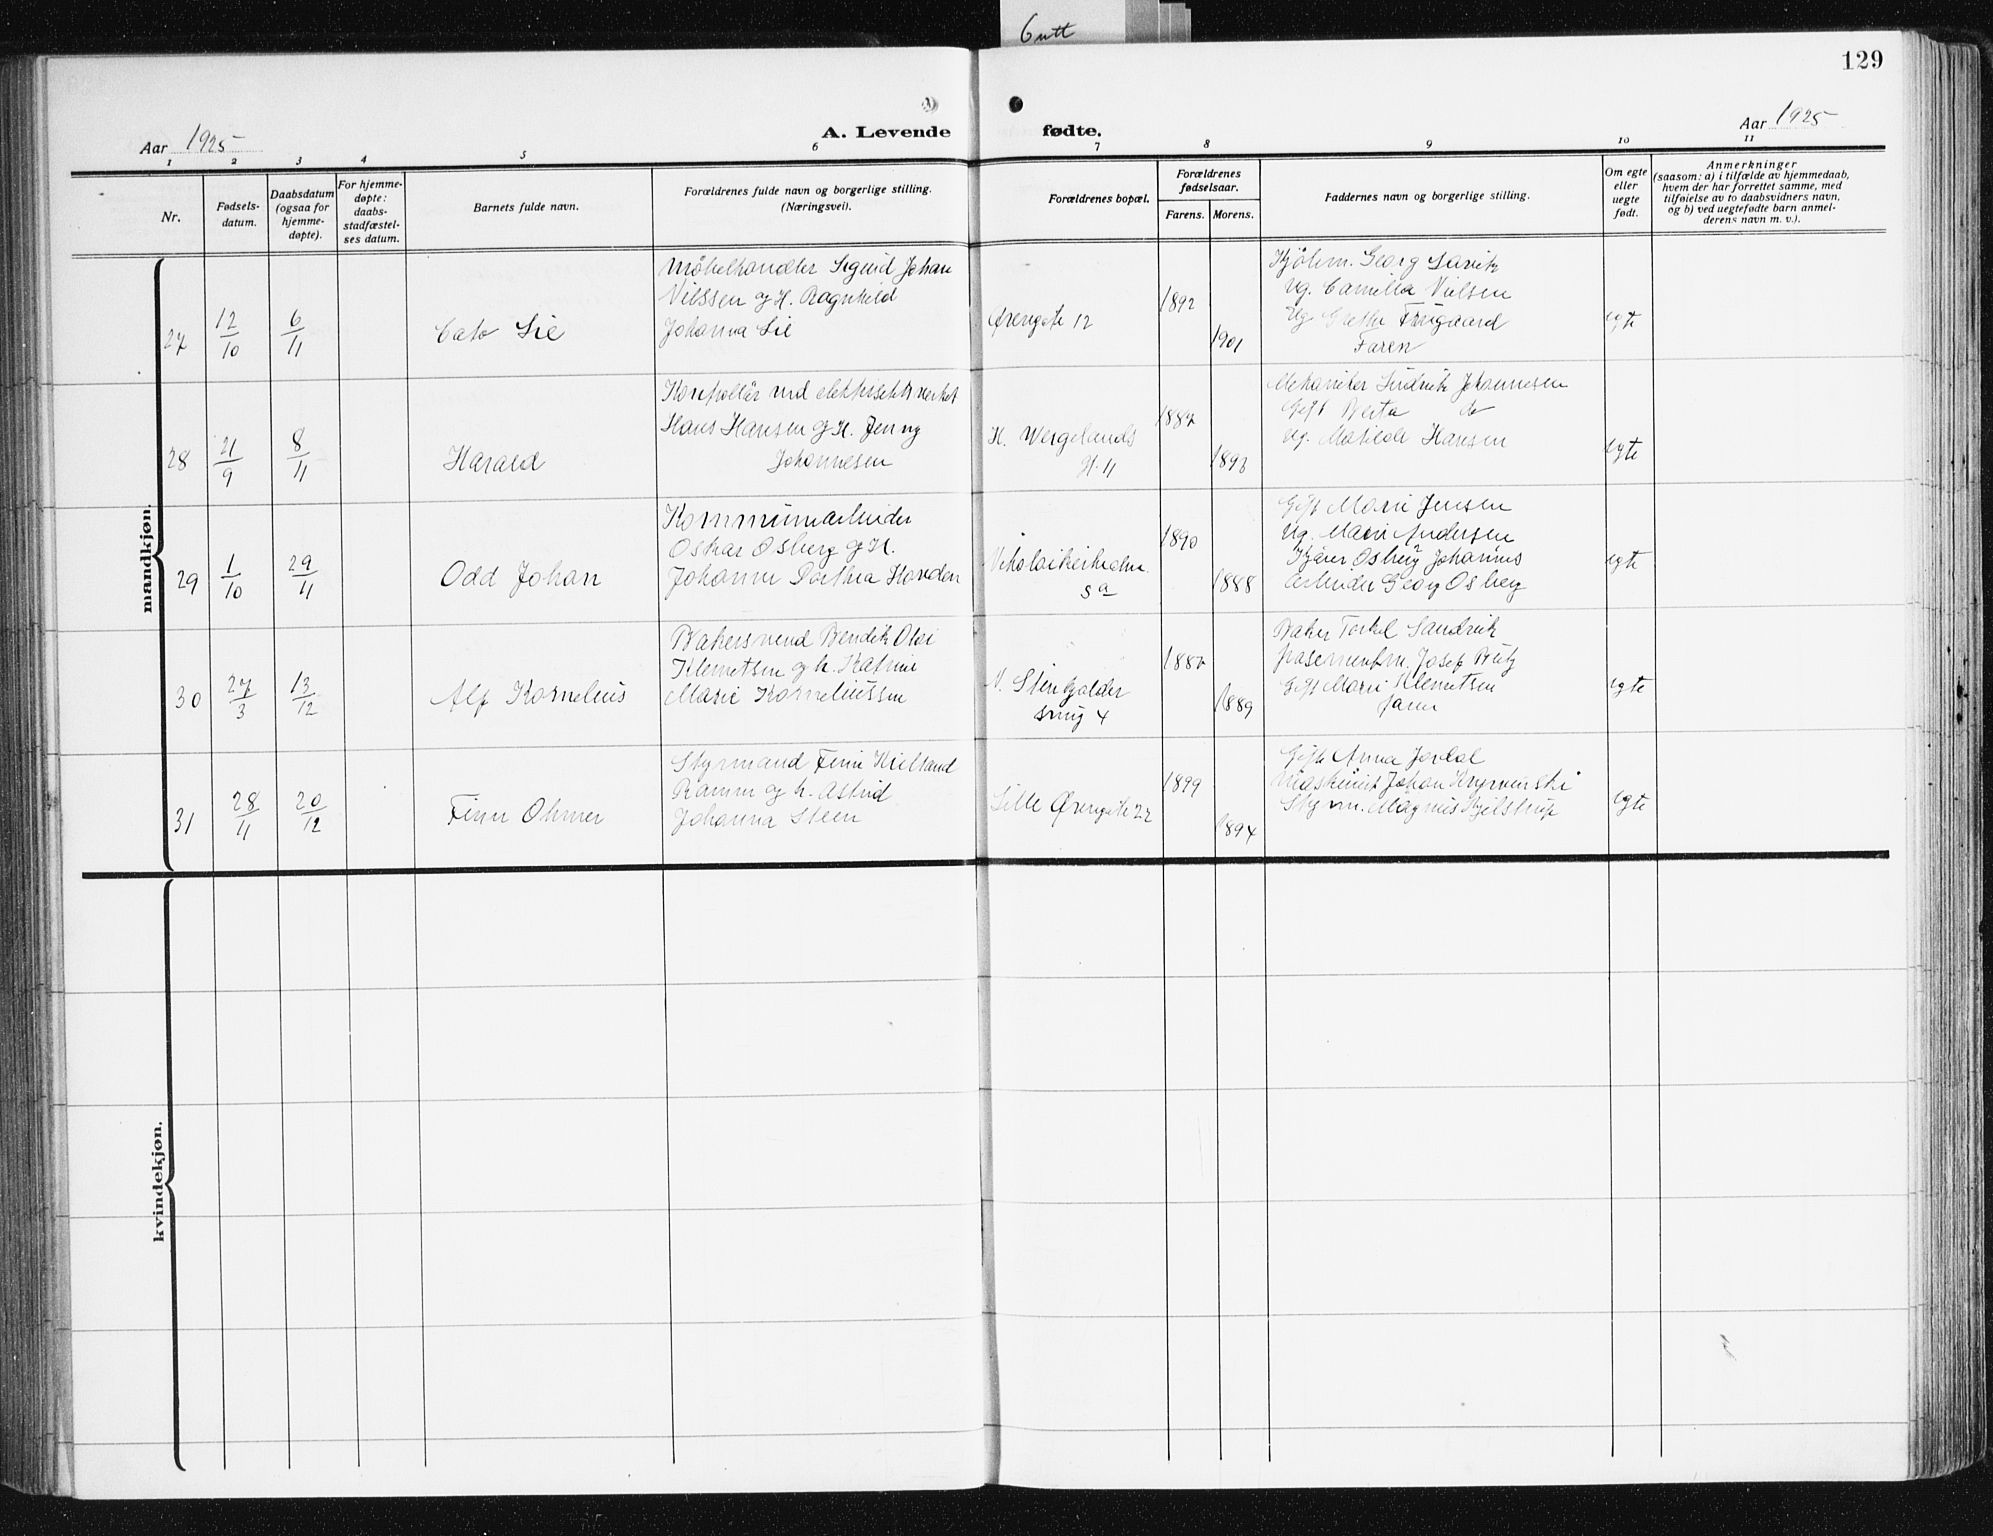 Gutt
129
Aar 1925
A. Levende fødte.
Aar 1925
1 2 3 4 5 6 7 8 9 10 11
Nr.
Fødsels-
datum.
Daabsdatum
(ogsaa for
hjemme-
døpte).
For hjemme-
døpte:
daabs-
stadfæstel-
ses datum.
Barnets fulde navn.
Forældrenes fulde navn og borgerlige stilling.
(Næringsvei).
Forældrenes bopæl.
Forældrenes
fødselsaar.
Farens. Morens.
Faddernes navn og borgerlige stilling.
Om egte
eller
uegte
født.
Anmerkninger
(saasom: a) i tilfælde av hjemmedaab,
hvem der har forrettet samme, med
tilføielse av to daabsvidners navn,
og b) ved uegtefødte barn anmel-
derens navn m. v.).
mandkjøn.
27
12/10
6/11
Cato Lie
Møbelhandler Sigurd Johan
Nilssen og H. Ragnhild
Johanna Lie
Øvengate 12
1892
1901
Kjøbm. Georg
Ug. Camilla Nielsen
Ug Grethe
Faren
egte
28
21/9
8/11
Harald
Kontrollør ved elektrisitetsverket
Hans Hansen og H. Jenny
Johannesen
H. Wergelands
gt. 11
1887
1893
Mekaniker Johannesen
Gift Berta do
Ug. Matilde Hansen
egte
29
1/10
29/11
Odd Johan
Kommunearbeider
Oskar Osberg og H.
Johanne Dorthea Konden
Nikolaikirkealm.
5a
1890
1888
Gift Marie Jensen
Ug. Marie Andersen
Osberg Johannes
Arbeider Georg Osberg
egte
30
27/3
13/12
Alf Kornelius
Bakersvend Bendik Olai
Klemetsen og h. Katrine
Marie Korneliussen
N. Stenkjelder
smug 4
1882
1889
Baker Torkel Sandvik
pasementm. Josef
Gift Marie Klemetsen
faren
egte
31
28/11
20/12
Finn Ohmer
Styrmand Finn Kielland
Ramm og h. Astrid
Johanna Steen
Lille Øvregate 22
1899
1894
Gift Anna Jordal
Maskinist Johan
Styrm. Magnus Kjelstrup
egte
kvindekjøn.